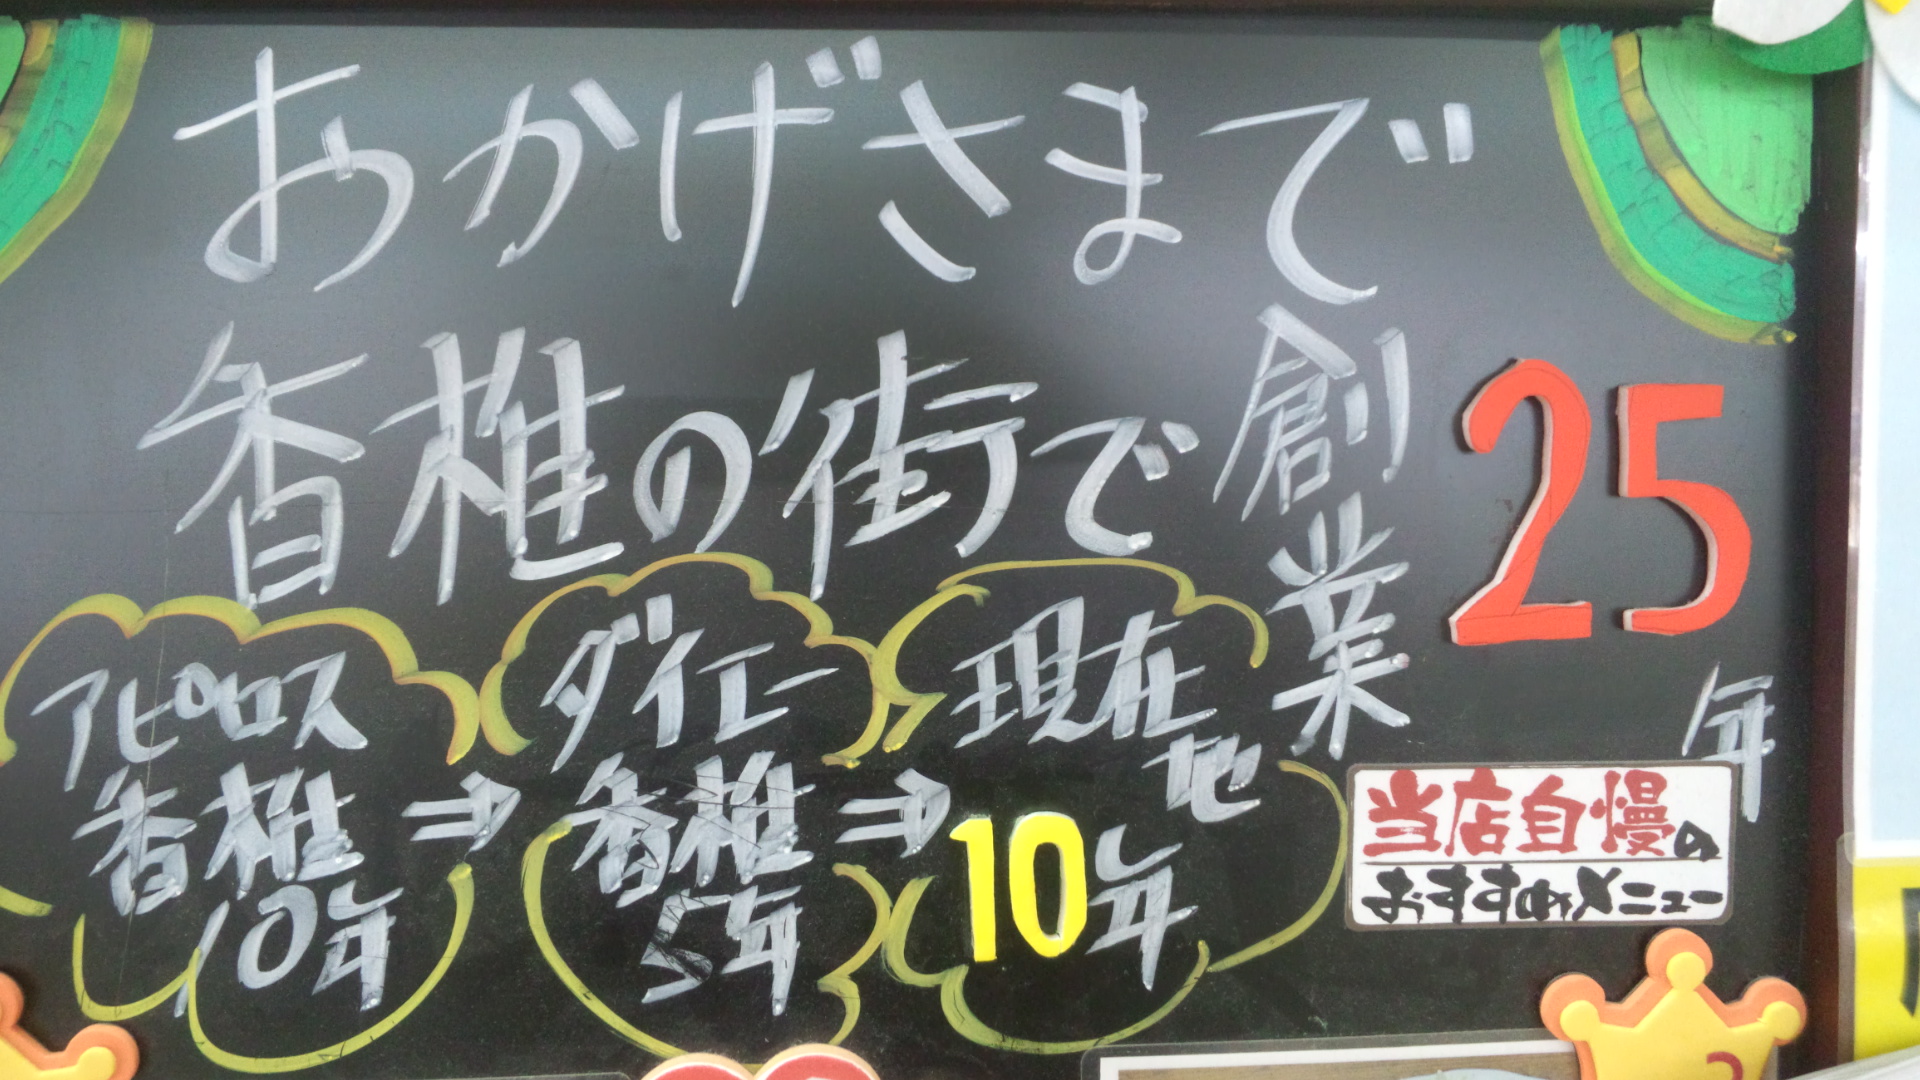 おかげさまで
香椎の街で創業25年
アピロス
香椎
10年
⇒
ダイエー
香椎
5年
⇒
現在地
10年
当店自慢の
おすすめメニュー